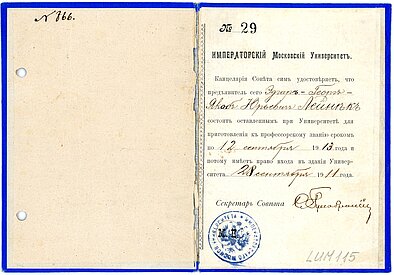 N. 366.
№ 29
ИМПЕРАТОРСКІЙ Московскій Университетъ.
Канцелярія Совѣта симъ удостовѣряетъ, что
предъявитель сего Эдгаръ-Георгъ-
Якобъ Юрьевичъ Лейнекъ
состоитъ оставленнымъ при Университетѣ для
приготовленія къ профессорскому званію срокомъ
по 12 сентября 1913 года и
потому имѣетъ право входа въ зданія Универ-
ситета. 28 сентября 1911 года.
Секретарь Совѣта
М. П.
LUM 115